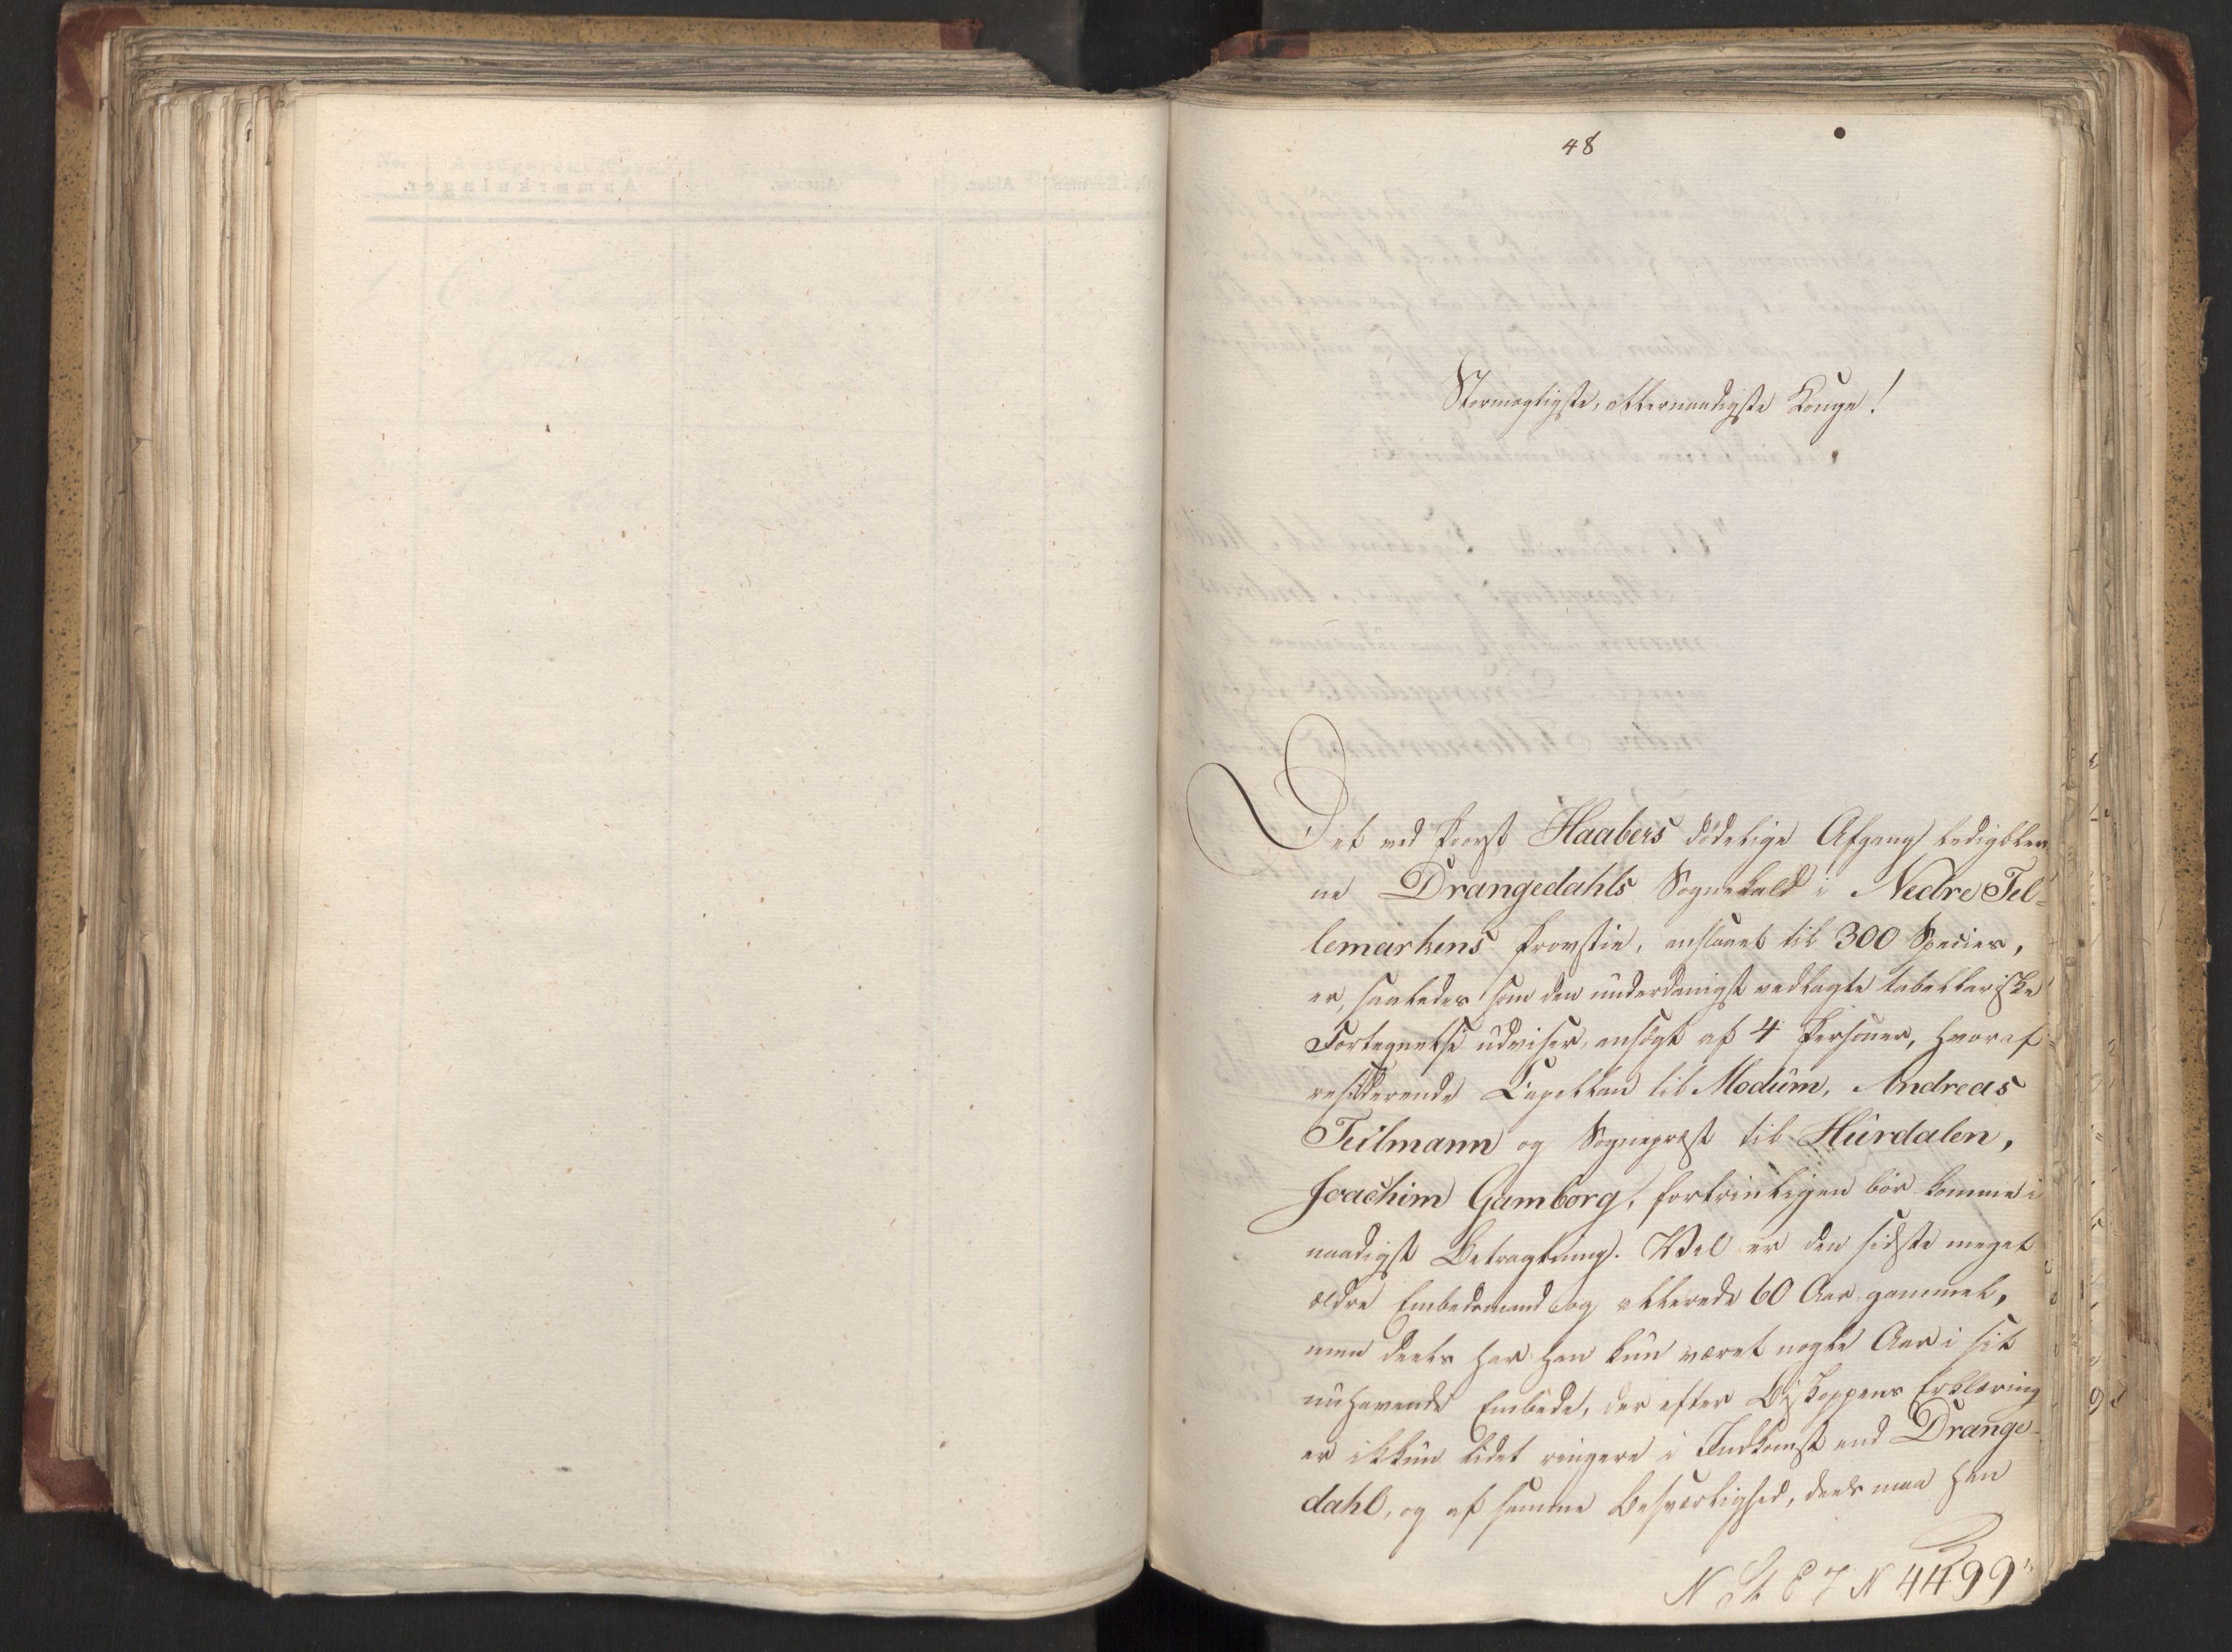 48
Stormægtigste, allernaadigste Konge!
Det ved Provst Haabers dödelige Afgang ledigblev
ne Drangedahls Sognekald i Nedre Tel=
lemarkens Provstie, anslaaet til 300 Species,
er, saaledes som den underdanigst vedlagte tabellariske
Fortegnelse udviser, ansögt af 4 Personer, hvoraf
residerende Capellan til Modum, Andreas
Teilmann og Sognepræst til Hurdalen,
Joachim Gamborg, fortrinligen bör komme i
naadigst Betragtning. Vel er den sidste meget
ældre Embedsmand og allerede 60 Aar gammel,
men deels har han kun været nogle Aar i sit
nuhavende Embede, der efter Biskoppens Erklæring
er ikkun lidet ringere i Indkomst end Drange-
dahl, og af samme Besværlighed, deels maa han
N 4499